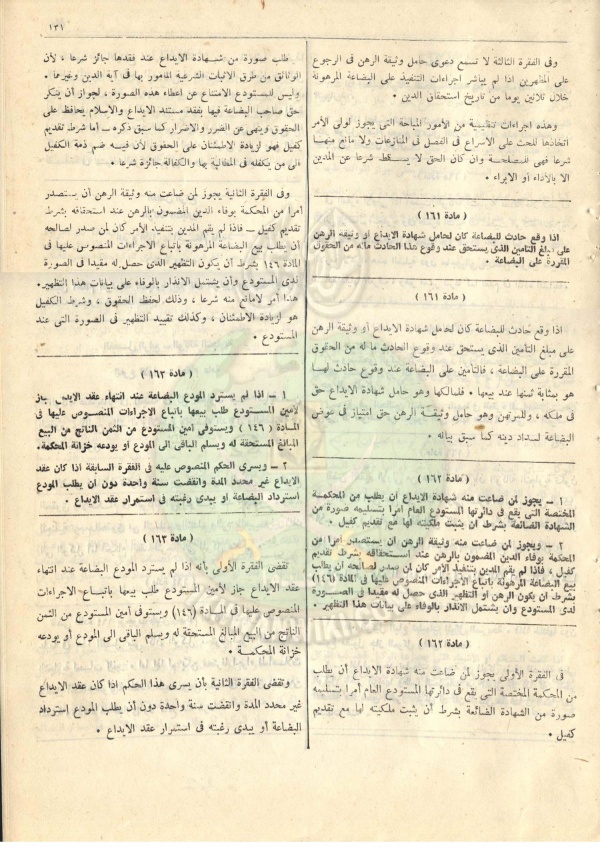 ١٣١
وفى الفقرة الثالثة لا تسمع دعوى حامل وثيقة الرهن فى الرجوع
على المظهرين اذا لم يباشر اجراءات التنفيذ على البضاعة المرهونة
خلال ثلاثين يوما من تاريخ استحقاق الدين .
وهذه اجراءات تنظيمية من الأمور المباحة التى يجوز لولى الأمر
اتخاذها للحث على الاسراع فى الفصل فى المنازعات ولا مانع منهـا
شرعا فهى للمصلحـة وان كان الحق لا يسـقط شرعا عن المدين
الا بالأداء أو الابراء .
( مادة ١٦١ )
اذا وقع حادث للبضاعة كان لحامل شهادة الايداع أو وثيقة الرهن
على مبلغ التأمين الذى يستحق عند وقوع هذا الحادث ما له من الحقوق
المقررة على البضاعة .
( مادة ١٦١ )
اذا وقع حادث للبضاعة كان لحامل شهادة الايداع أو وثيقة الرهن
على مبلغ التأمين الذى يستحق عند وقوع الحادث ما له من الحقوق
المقررة على البضاعة ، فالتأمين على البضاعة عند وقوع حادث لهـا
هو بمثابة ثمنها عند بيعها . فلمالكها وهو حامل شهادة الايداع حق
فى ملكه ، وللمرتهن وهو حامل وثيقـة الرهن حق امتياز فى عوض
البضاعة لسداد دينه كما سبق بيانه .
( مادة ١٦٢ )
١ – يجوز لمن ضاعت منه شهادة الايداع أن يطلب من المحكمة
المختصة التى يقع فى دائرتها المستودع العام أمرا بتسليمه صورة من
الشهادة الضائعة بشرط أن يثبت ملكيته لها مع تقديم كفيل .
٢ – ويجوز لمن ضاعت منه وثيقة الرهن أن يستصدر أمرا من
المحكمة بوفاء الدين المضمون بالرهن عند استحقاقه بشرط تقديم
كفيل ، فاذا لم يقم المدين بتنفيذ الأمر كان لمن صدر لصالحه أن يطلب
بيع البضاعة المرهونة باتباع الاجراءات المنصوص عليها فى المادة (١٤٦)
بشرط أن يكون الرهن أو التظهير الذى حصل له مقيدا فى الصـورة
لدى المستودع وان يشتمل الانذار بالوفاء على بيانات هذا التظهير .
( مادة ١٦٢ )
فى الفقرة الأولى يجوز لمن ضاعت منه شهادة الايداع أن يطلب
من المحكمة المختصة التى يقع فى دائرتها المستودع العام أمرا بتسليمه
صورة من الشهادة الضائعة بشرط أن يثبت ملكيته لها مع تقديم
كفيل .
طلب صورة من شهادة الايداع عند فقدها جائز شرعا ، لأن
الوثائق من طرق الاثبات الشرعية المأمور بها فى آية الدين وغيرها .
وليس للمستودع الامتناع عن اعطاء هذه الصورة ، لجواز أن ينكر
حق صاحب البضاعة فيها بفقد مستند الايداع والاسلام يحافظ على
الحقوق وينهى عن الضرر والاضرار كما سبق ذكره – أما شرط تقديم
كفيل فهو لزيادة الاطمئنان على الحقوق لأن فيه ضم ذمة الكفيل
الى من يكفله فى المطالبة بها والكفالة جائزة شرعا .
وفى الفقرة الثانية يجوز لمن ضاعت منه وثيقة الرهن أن يستصدر
أمرا من المحكمة بوفاء الدين المضمون بالرهن عند استحقاقه بشرط
تقديم كفيل – فاذا لم يقم المدين بتنفيذ الأمر كان لمن صدر لصالحه
أن يطلب بيع البضاعة المرهونة باتباع الاجراءات المنصوص عليها فى
المادة ١٤٦ بشرط أن يكون التظهير الذى حصل له مقيدا فى الصورة
لدى المستودع وأن يشتمل الانذار بالوفاء على بيانات هذا التظهير.
هذا أمر لامانع منه شرعا ، وذلك لحفظ الحقوق ، وشرط الكفيل
هو لزيادة الاطمئنان ، وكذلك تقييد التظهير فى الصورة التى عند
المستودع .
( مادة ١٦٣ )
١ – اذا لم يسترد المودع البضاعة عند انتهاء عقد الايداع جاز
لأمين المستودع طلب بيعها باتباع الاجراءات المنصوص عليها فى
المادة ( ١٤٦ ) ويستوفى أمين المستودع من الثمن الناتج من البيع
المبالغ المستحقة له ويسلم الباقى الى المودع أو يودعه خزانة المحكمة.
٢ – ويسرى الحكم المنصوص عليه فى الفقرة السابقة اذا كان عقد
الايداع غير محدد المدة وانقضت سنة واحدة دون أن يطلب المودع
استرداد البضاعة أو يبدى رغبته فى استمرار عقد الايداع .
( مادة ١٦٣ )
تقضى الفقرة الأولى بأنه اذا لم يسترد المودع البضاعة عند انتهاء
عقد الايداع جاز لأمين المستودع طلب بيعها باتبـاع الاجراءات
المنصوص عليها فى المـادة (١٤٦) ويستوفى أمين المستودع من الثمن
الناتج من البيع المبالغ المستحقة له ويسلم الباقى الى المودع أو يودعه
خزانة المحكمـة .
وتقضى الفقرة الثانية بأن يسرى هذا الحكم اذا كان عقد الايداع
غير محدد المدة وانقضت سنة واحدة دون أن يطلب المودع استرداد
البضاعة أو يبدى رغبته فى استمرار عقد الايداع .